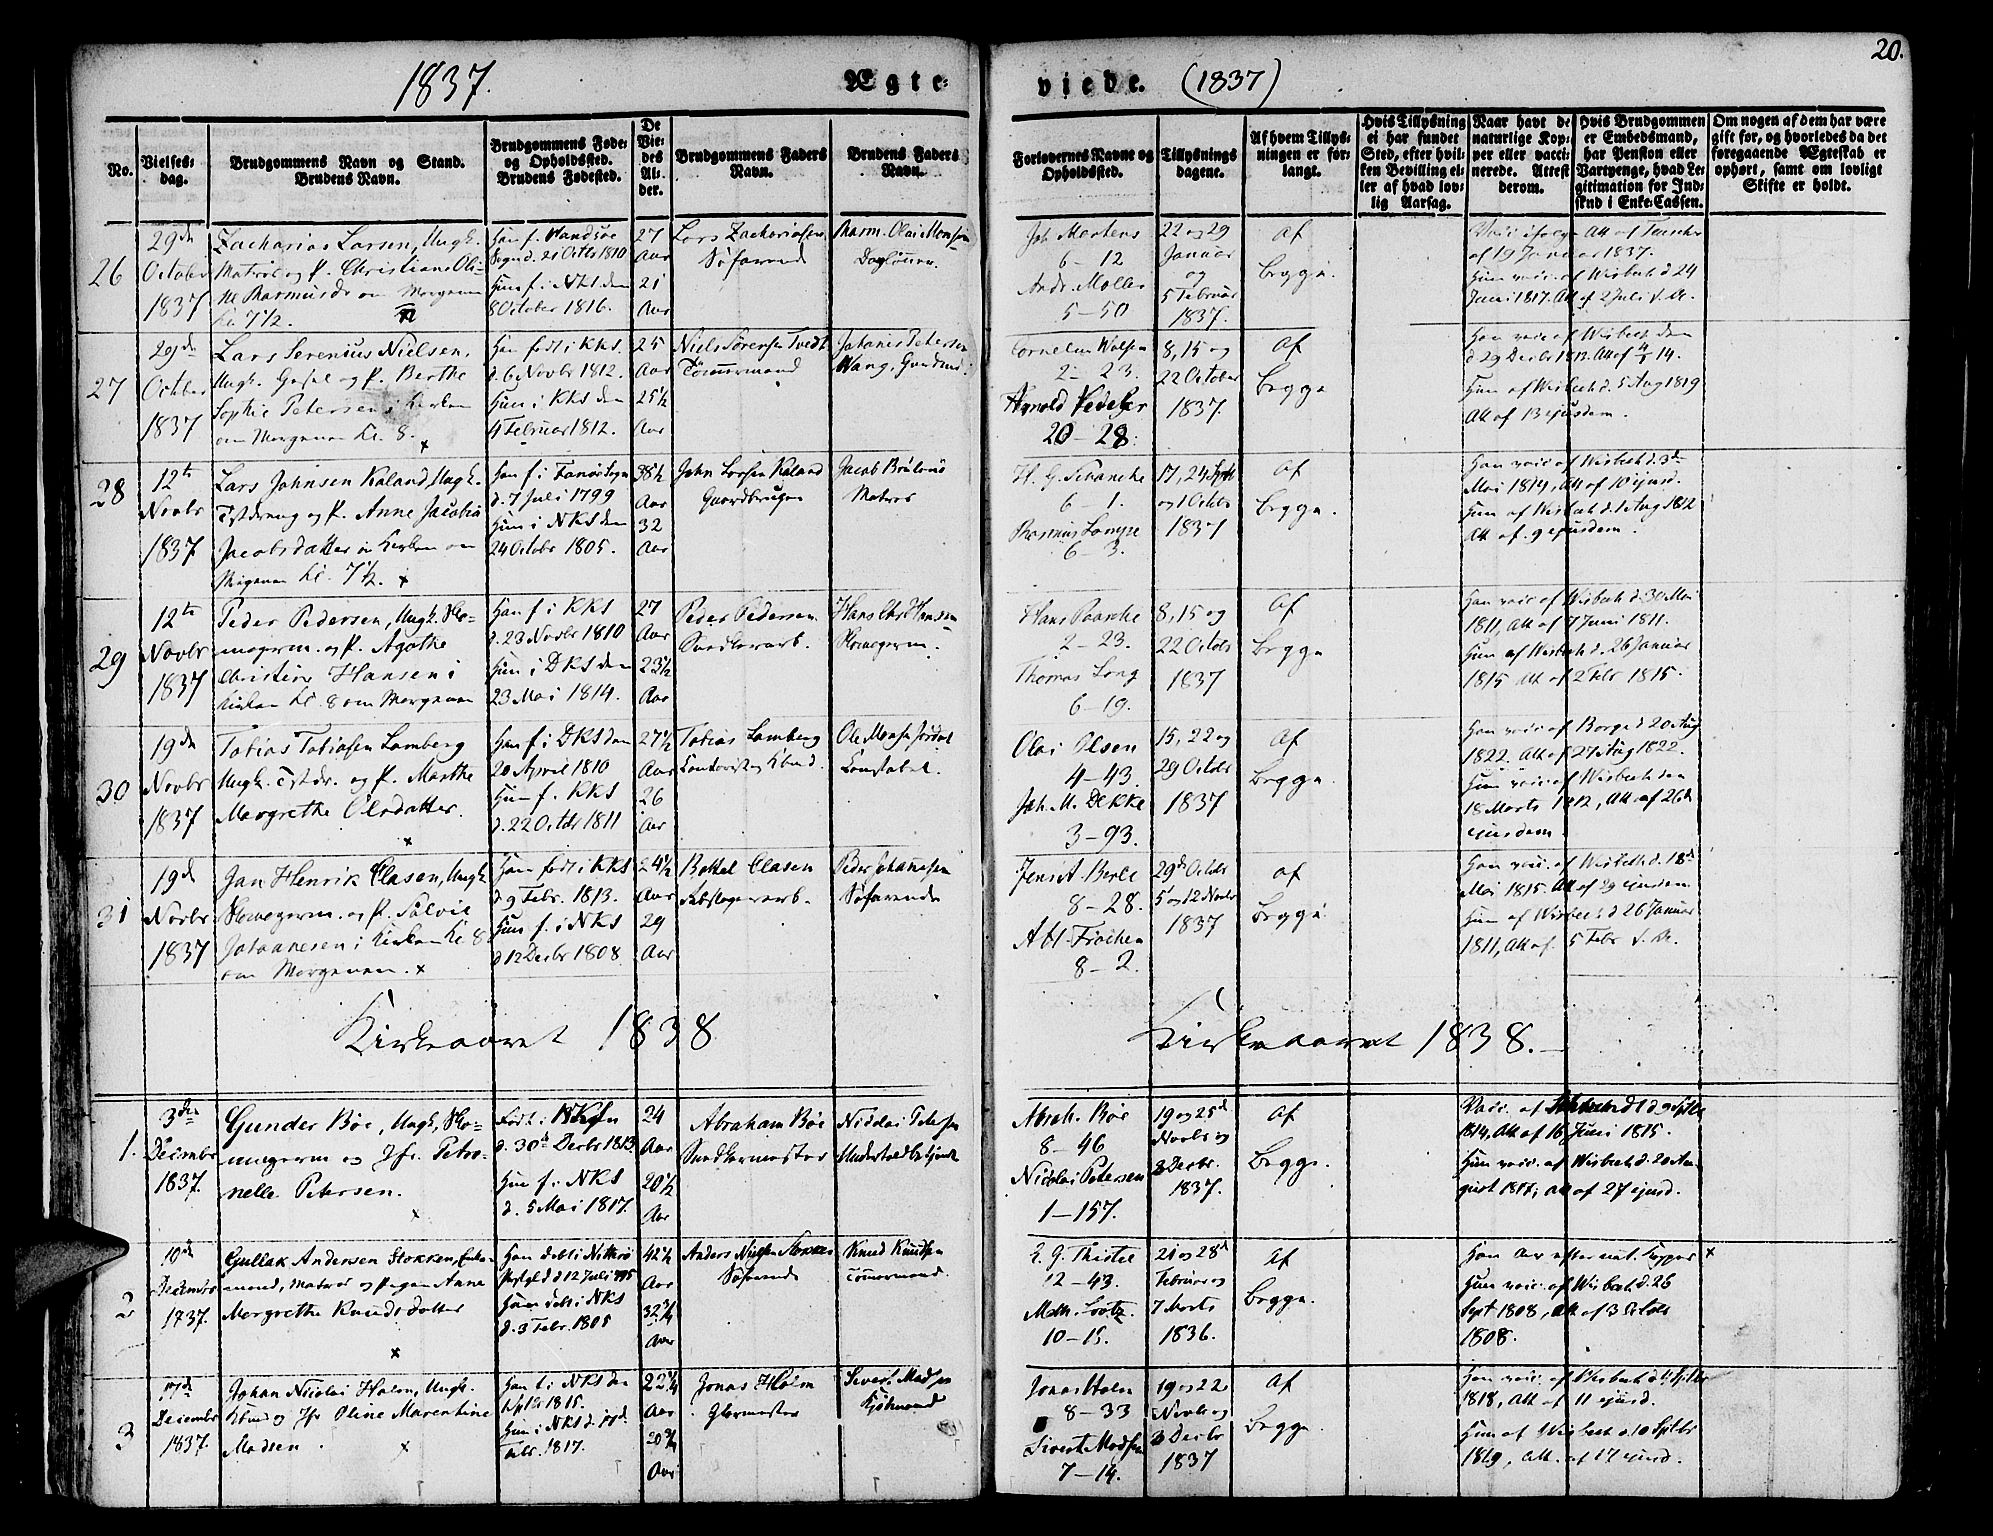 1837.
Ægte-
viede. (1837)
20.
No.
Vielses-
dag.
Brudgommens Navn og Stand.
Brudens Navn.
Brudgommens Føde-
og Opholdssted.
Brudens Fødested.
De
Vie-
des
Al-
der.
Brudgommens Faders
Navn.
Brudens Faders
Navn.
Forlovernes Navne og
Opholdssted.
Tillysnings
dagene.
Af hvem Tillys-
ningen er for-
langt.
Hvis Tillysning
ei har fundet
Sted, efter hvil-
ken Bevilling el-
ler af hvad lov-
lig Aarsag.
Naar havt de
naturlige Kop-
per eller vacci-
nerede. Attest
derom.
Hvis Brudgommen
er Embedsmand,
har Pension eller
Vartpenge, hvad Le-
gitimation for Ind-
skud i Enke-Cassen.
Om nogen af dem har være
gift før, og hvorledes da det
foregaaende Ægteskab er
ophørt, samt om lovligt
Skifte er holdt.
26
29de
October
1837
Zacharias Larsen, Ungk.
Matros og P. Christiane Oli-
ne Rasmusdr om Morgenen
kl. 7½.
Han f.
Sogn d. 21 Octbr 1810
Hun f. i NKS den
8 October 1816.
27
Aar
21
Aar
Lars Zachariasen
Søfarend
Rasm. Olai Monsen
Dagløn.
Joh Martens
6 – 12
Andr. Møller
5 – 50
22 og 29
Januar
og
5 Februar
1837.
Af
begge.
af 19 Januar 1837.
Hun vacc. af Wisbech d. 24
Juni 1817. Att af 2 Juli s. A.
27
29de
October
1837
Lars Serenius Nielsen,
Ungk. Gesel og P. Berthe
Sophie Petersen i Kirken
om Morgenen kl. 8. x
Han født i KKS.
d. 6 Novbr 1812.
Hun i KKS den
4 Februar 1812.
25
Aar
25½
Aar
Niels Sørensen Tvedt
Tømmermand
Johanes Petersen
Wang,
Cornelius
2 – 23.
Arnold Vedeler
20 – 28.
8, 15 og
22 October
1837.
Af
Begge
Han vacc. af Wisbech den
d 29 Decbr 1813. Att af 4/5 14.
Hun af Wisbech d. 5 Aug 1819
Att af 13 ejusdem.
28
12te
Novbr
1837
Lars Johnsen Kaland, Ungk.
og P. Anne Jacobia
Jacobsdatter i Kirken om
Morgenen kl. 7½. x
Han f. i Fanøe Sogn
d. 7 Juli 1799
Hun i NKS den
24 Octobr 1805.
38½
Aar
32
Aar
John Larsen Kaland
Gaardbruger
Jacob
Matros
H. G. Schancke
6 – 1.
Rasmus Lampe
6 – 3.
17, 24 Sept
og 1 Octbr
1837
Af
begge.
Han vacc af Wisbech d. 3de
Mai 1814, Att af 10 ejusd.
Hun af Wisbech d. 1 Aug 1812
Att af 9 ejusdem.
29
12te
Novbr
1837
Peder Pedersen, Ungk. Sko-
magerm. og P. Agathe
Christine Hansen i
Kirken kl. 8 om Morgenen
Han f. i KKS
d. 23 Novbr 1810
Hun i DKS den
23 Mai 1814.
27
Aar
23½
Aar
Peder Pedersen
Snedkerarb.
Hans Chr Hansen
Skomagerm.
Hans Paasche
2 – 23.
Thomas Lang
6 – 19.
8, 15 og
22 Octobr
1837
Af
begge
Han vacc af Wisbech d. 30 Mai
1811, Att af 7 Juni 1811.
Hun af Wisbech d. 26 Januar
1815 Att af 2 Febr 1815.
30
19de
Novbr
1837
Tobias Tobiasen Lamberg
Ungk. og P. Marthe
Margrethe Olsdatter.
x
Han f. i DKS den
20 April 1810
Hun f. KKS
d. 22 Octbr 1811
27½
Aar
26
Aar
Tobias Lamberg
Ole Monsen
Constabel.
Olai Olsen
4 – 43.
Joh. M. Dekke
3 – 93.
15, 22 og
29 Octobr
1837
Af
begge.
Han vacc. af Borge d 20 Aug
1822. Att af 27 Aug 1822.
Hun vacc. af Wisbech den
18 Marts 1812, Att. af 26de
ejusdem.
31
19de
Novbr
1837
Jan Henrik Clasen, Ungk
Skomagerm. og P. Sølvie
Johannesen i Kirken kl. 8
om Morgenen. x
Han født i KKS
d 9 Febr. 1813.
Hun f. i NKS
d 12 Decbr 1808.
24½
Aar
29
Aar
Bottel Clasen
Peder Johannesen
Søfarende
Jens A. Berle
8 – 28.
Abl. Frøchen
8 – 2.
29de Octobr
5 og 12 Novbr
1837
af
begge
Han vacc. af Wisbech d. 18de
Mai 1815 Att af 29 ejusdem.
Hun af Wisbech d 26 Januar
1811, Att af 5 Febr s. A.
Kirkeaaret 1838
Kirkeaaret 1838.
1.
3die
December
1837.
Gunder Bøe, Ungk, Sko-
magerm og Jfr. Petro-
nelle Petersen.
x
Født i
d. 30te Decbr 1813.
Hun f. i NKS
d. 5 Mai 1817.
24
Aar
20½
Aar
Abraham Bøe
Snedkermester
Nicolai Petersen
Abrah. Bøe
8 – 46
Nicolai Petersen
1 – 157.
19 og 25de
Novbr og
3 Decbr.
1837.
Af
Begge.
Vacc. af
1814, Att af 16 Juni 1815.
Hun vacc. af Wisbech d. 20 Au-
gust 1817; Att af 27 ejusd.
2
10de
December
1737.
Gullak Andersen Stokken, Enke-
mand, Matros og Pigen Anne
Margrethe Knudsdatter
x
d 12 Juli 1795
Hun født i NKS
d. 3 Febr. 1805
42½
Aar
32¾
Aar
Anders Nielsen Stokken
Søfarende
Knud Knudsen
Tømermand.
E. G. Thistel
12 – 43.
Math. Lootz
10 – 15.
21 og 28de
Februar og
7 Marts
1836.
Af
Begge.
Han har efter nat. Kopper x
Hun vacc. af Wisbech d. 26
Sept 1808, Att af 3 Octobr
1808.
3
17de
December
1837.
Johan Nicolai Holm, Ungk.
og Jfr Oline Marentine
Madsen. x
Han f. i NKS den
1815.
Hun i NKS d. 17de
Febr. 1817.
22¼
Aar
20¾
Aar
Jonas Holm
Glarmester
Sivert Madsen
Kjøbmand
Jonas Holm
8 – 33
Sivert Madsen
7 – 14.
19 og 22
Novbr og
3 Decbr
1837
Af
Begge.
Han vacc. af Wisbech d. Septbr
1818, Att af 11 ejusd.
Hun af Wisbech d. 10 Septbr
1819, Att. af 17 ejusd.